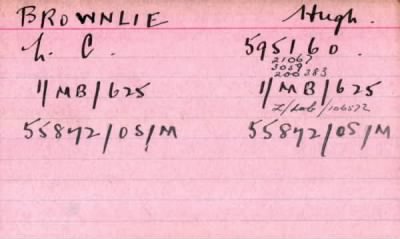 BROWNLIE Hugh.
L. C. 595160.
21067
3059
200383
1/MB/625 1/MB/625
L/Lab/106522
55872/OS/M 55872/OS/M